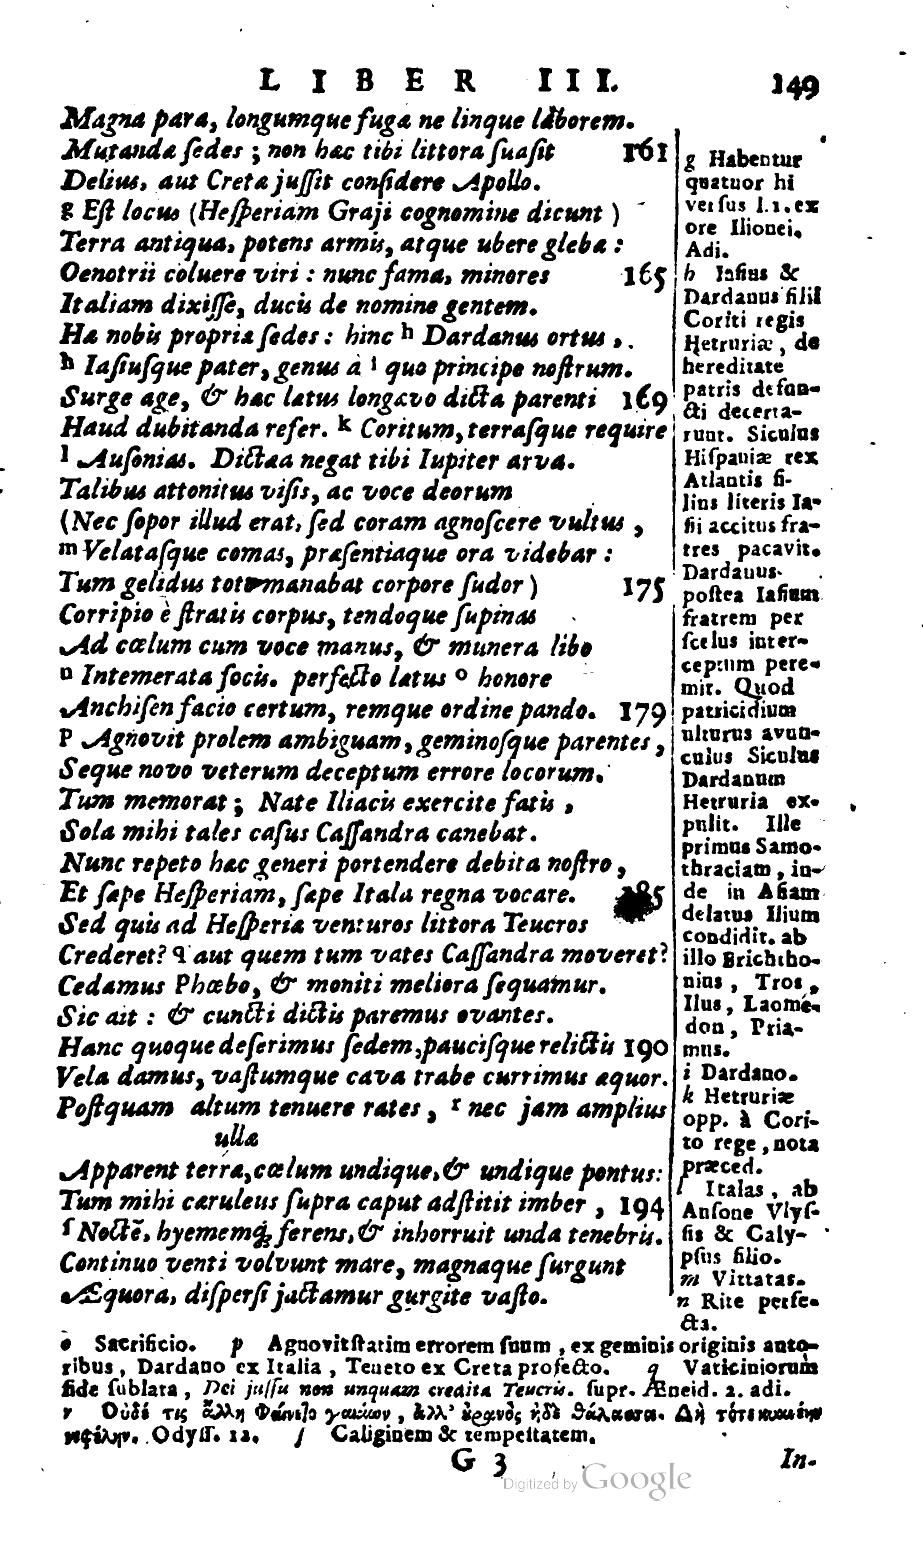 LIBER III. 149
Magna para, longumque fugæ ne linque laborem.
Mutandæ ſedes ; non hæc tibi littora ſuaſit 161
Delius, aut Cretæ juſſit conſidere Apollo.
g Eſt locus (Heſperiam Graji cognomine dicunt)
Terra antiqua, potens armis, atque ubere glebæ :
Oenotrii coluere viri : nunc fama, minores 165
Italiam dixiſſe, ducis de nomine gentem.
Hæ nobis propriæ ſedes : hinc h Dardanus ortus ,
h Iaſiuſque pater, genus à i quo principe noſtrum.
Surge age, & hæc lætus longævo dicta parenti 169
Haud dubitanda refer. k Coritum, terraſque require
l Auſonias. Dictæa negat tibi Iupiter arva.
Talibus attonitus viſis, ac voce deorum
(Nec ſopor illud erat, ſed coram agnoſcere vultus ,
m Velataſque comas, præſentiaque ora videbar :
Tum gelidus toto manabat corpore ſudor) 175
Corripio è ſtratis corpus, tendoque ſupinas
Ad cœlum cum voce manus, & munera libo
n Intemerata focis. perfecto lætus o honore
Anchiſen facio certum, remque ordine pando. 179
p Agnovit prolem ambiguam, geminoſque parentes ,
Seque novo veterum deceptum errore locorum.
Tum memorat ; Nate Iliacis exercite fatis ,
Sola mihi tales caſus Caſſandra canebat.
Nunc repeto hæc generi portendere debita noſtro ,
Et ſæpe Heſperiam, ſæpe Itala regna vocare. 185
Sed quis ad Heſperiæ venturos littora Teucros
Crederet? q aut quem tum vates Caſſandra moveret?
Cedamus Phœbo, & moniti meliora ſequamur.
Sic ait : & cuncti dictis paremus ovantes.
Hanc quoque deſerimus ſedem, pauciſque relictis 190
Vela damus, vaſtumque cava trabe currimus æquor.
Poſtquam altum tenuere rates , r nec jam amplius
ullæ
Apparent terræ, cœlum undique, & undique pontus:
Tum mihi cæruleus ſupra caput adſtitit imber , 194
ſ Noctẽ, hyememq; ferens, & inhorruit unda tenebris.
Continuo venti volvunt mare, magnaque ſurgunt
Æquora, diſperſi jactamur gurgite vaſto.
g Habentur
quatuor hi
verſus l.1. ex
ore Ilionei.
Adi.
h Iaſius &
Dardanus filii
Coriti regis
Hetruriæ , de
hereditate
patris defun-
cti decerta-
runt. Siculus
Hiſpaniæ rex
Atlantis fi-
lius literis Ia-
ſii accitus fra-
tres pacavit.
Dardanus
poſtea Iaſium
fratrem per
ſcelus inter-
ceptum pere-
mit. Quod
patricidium
ulturus avun-
culus Siculus
Dardanum
Hetruria ex-
pulit. Ille
primus Samo-
thraciam , in-
de in Aſiam
delatus Ilium
condidit. ab
illo Erichtho-
nius , Tros ,
Ilus , Laome-
don , Pria-
mus.
i Dardano.
k Hetruriæ
opp. à Cori-
to rege , nota
præced.
l Italas , ab
Auſone Vlyſ-
ſis & Caly-
pſus filio.
m Vittatas.
n Rite perfe-
cta.
o Sacrificio. p Agnovit ſtatim errorem ſuum , ex geminis originis auto-
ribus , Dardano ex Italia , Teucro ex Creta profecto. q Vaticiniorum
fide ſublata , Dei juſſu non unquam credita Teucris. ſupr. Æneid. 2. adi.
r Οὐδέ τις ἄλλη Φαίνετο γαιάων , ἀλλ' οὐρανὸς ἠδὲ θάλασσα. Δὴ τότε κυανέην
νεφέλην. Odyſſ. 12. ſ Caliginem & tempeſtatem.
G 3 In-
Digitized by Google